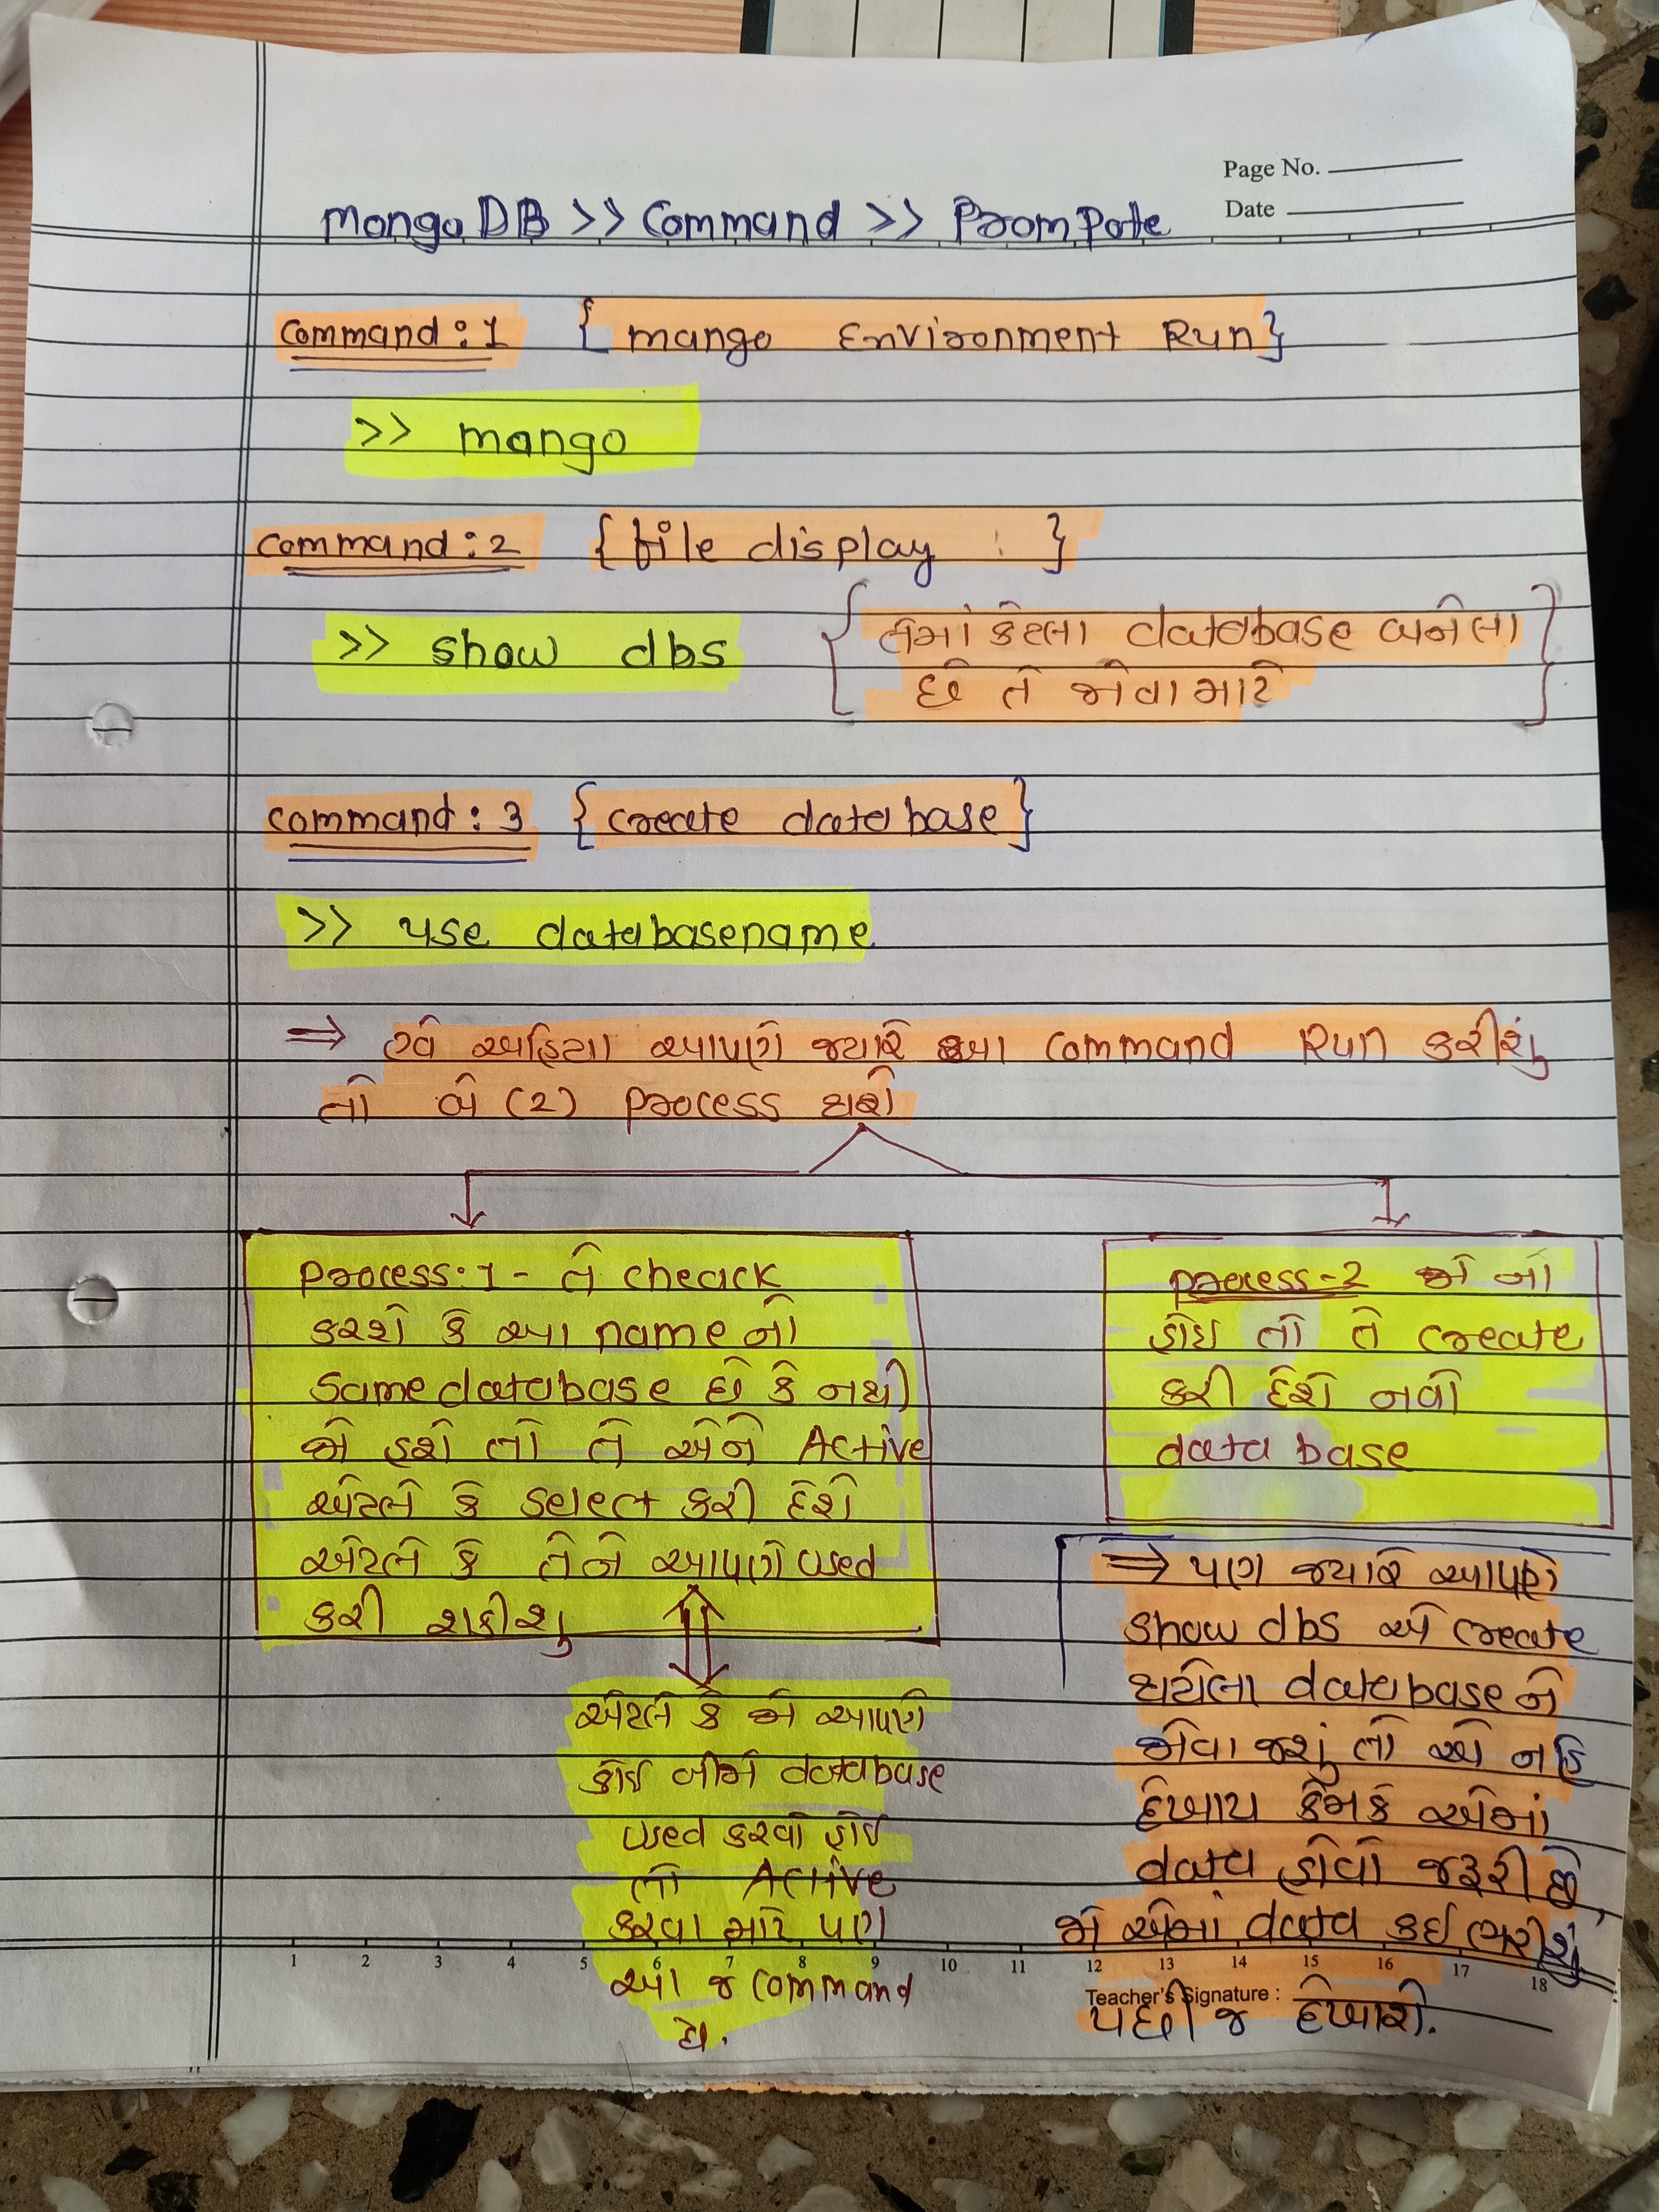 Page No.
Date
MongoDB >> Command >> Prompote
Command : 1 { mango Environment Run }
>> mango
Command : 2 { file display : }
>> show dbs
{ તેમાં કેટલા database બનેલા
છે તે જોવા માટે }
Command : 3 { create database }
>> use databasename
⇒ હવે અહિયા આપણે જ્યારે આ command Run કરીશું
તો બે (2) process થશે
process : 1 - તે cheack
કરશે કે આ name નો
same database છે કે નથી
જો હશે તો તે એને Active
એટલે કે select કરી દેશે
એટલે કે તેને આપણે used
કરી શકીશુ
એટલે કે જો આપણે
કોઈ બીજો database
used કરવો હોઈ
તો Active
કરવા માટે પણ
આ જ command
છે.
process - 2 જો નો
હોઇ તો તે create
કરી દેશે નવો
data base
⇒ પણ જ્યારે આપણે
show dbs એ create
થયેલા database ને
જોવા જશું તો એ નહિ
દેખાય કેમકે એમાં
data હોવો જરૂરી છે,
જો એમાં data કઇ ભરીશું
પછી જ દેખાશે.
1 2 3 4 5 6 7 8 9 10 11 12 13 14 15 16 17 18
Teacher's Signature :